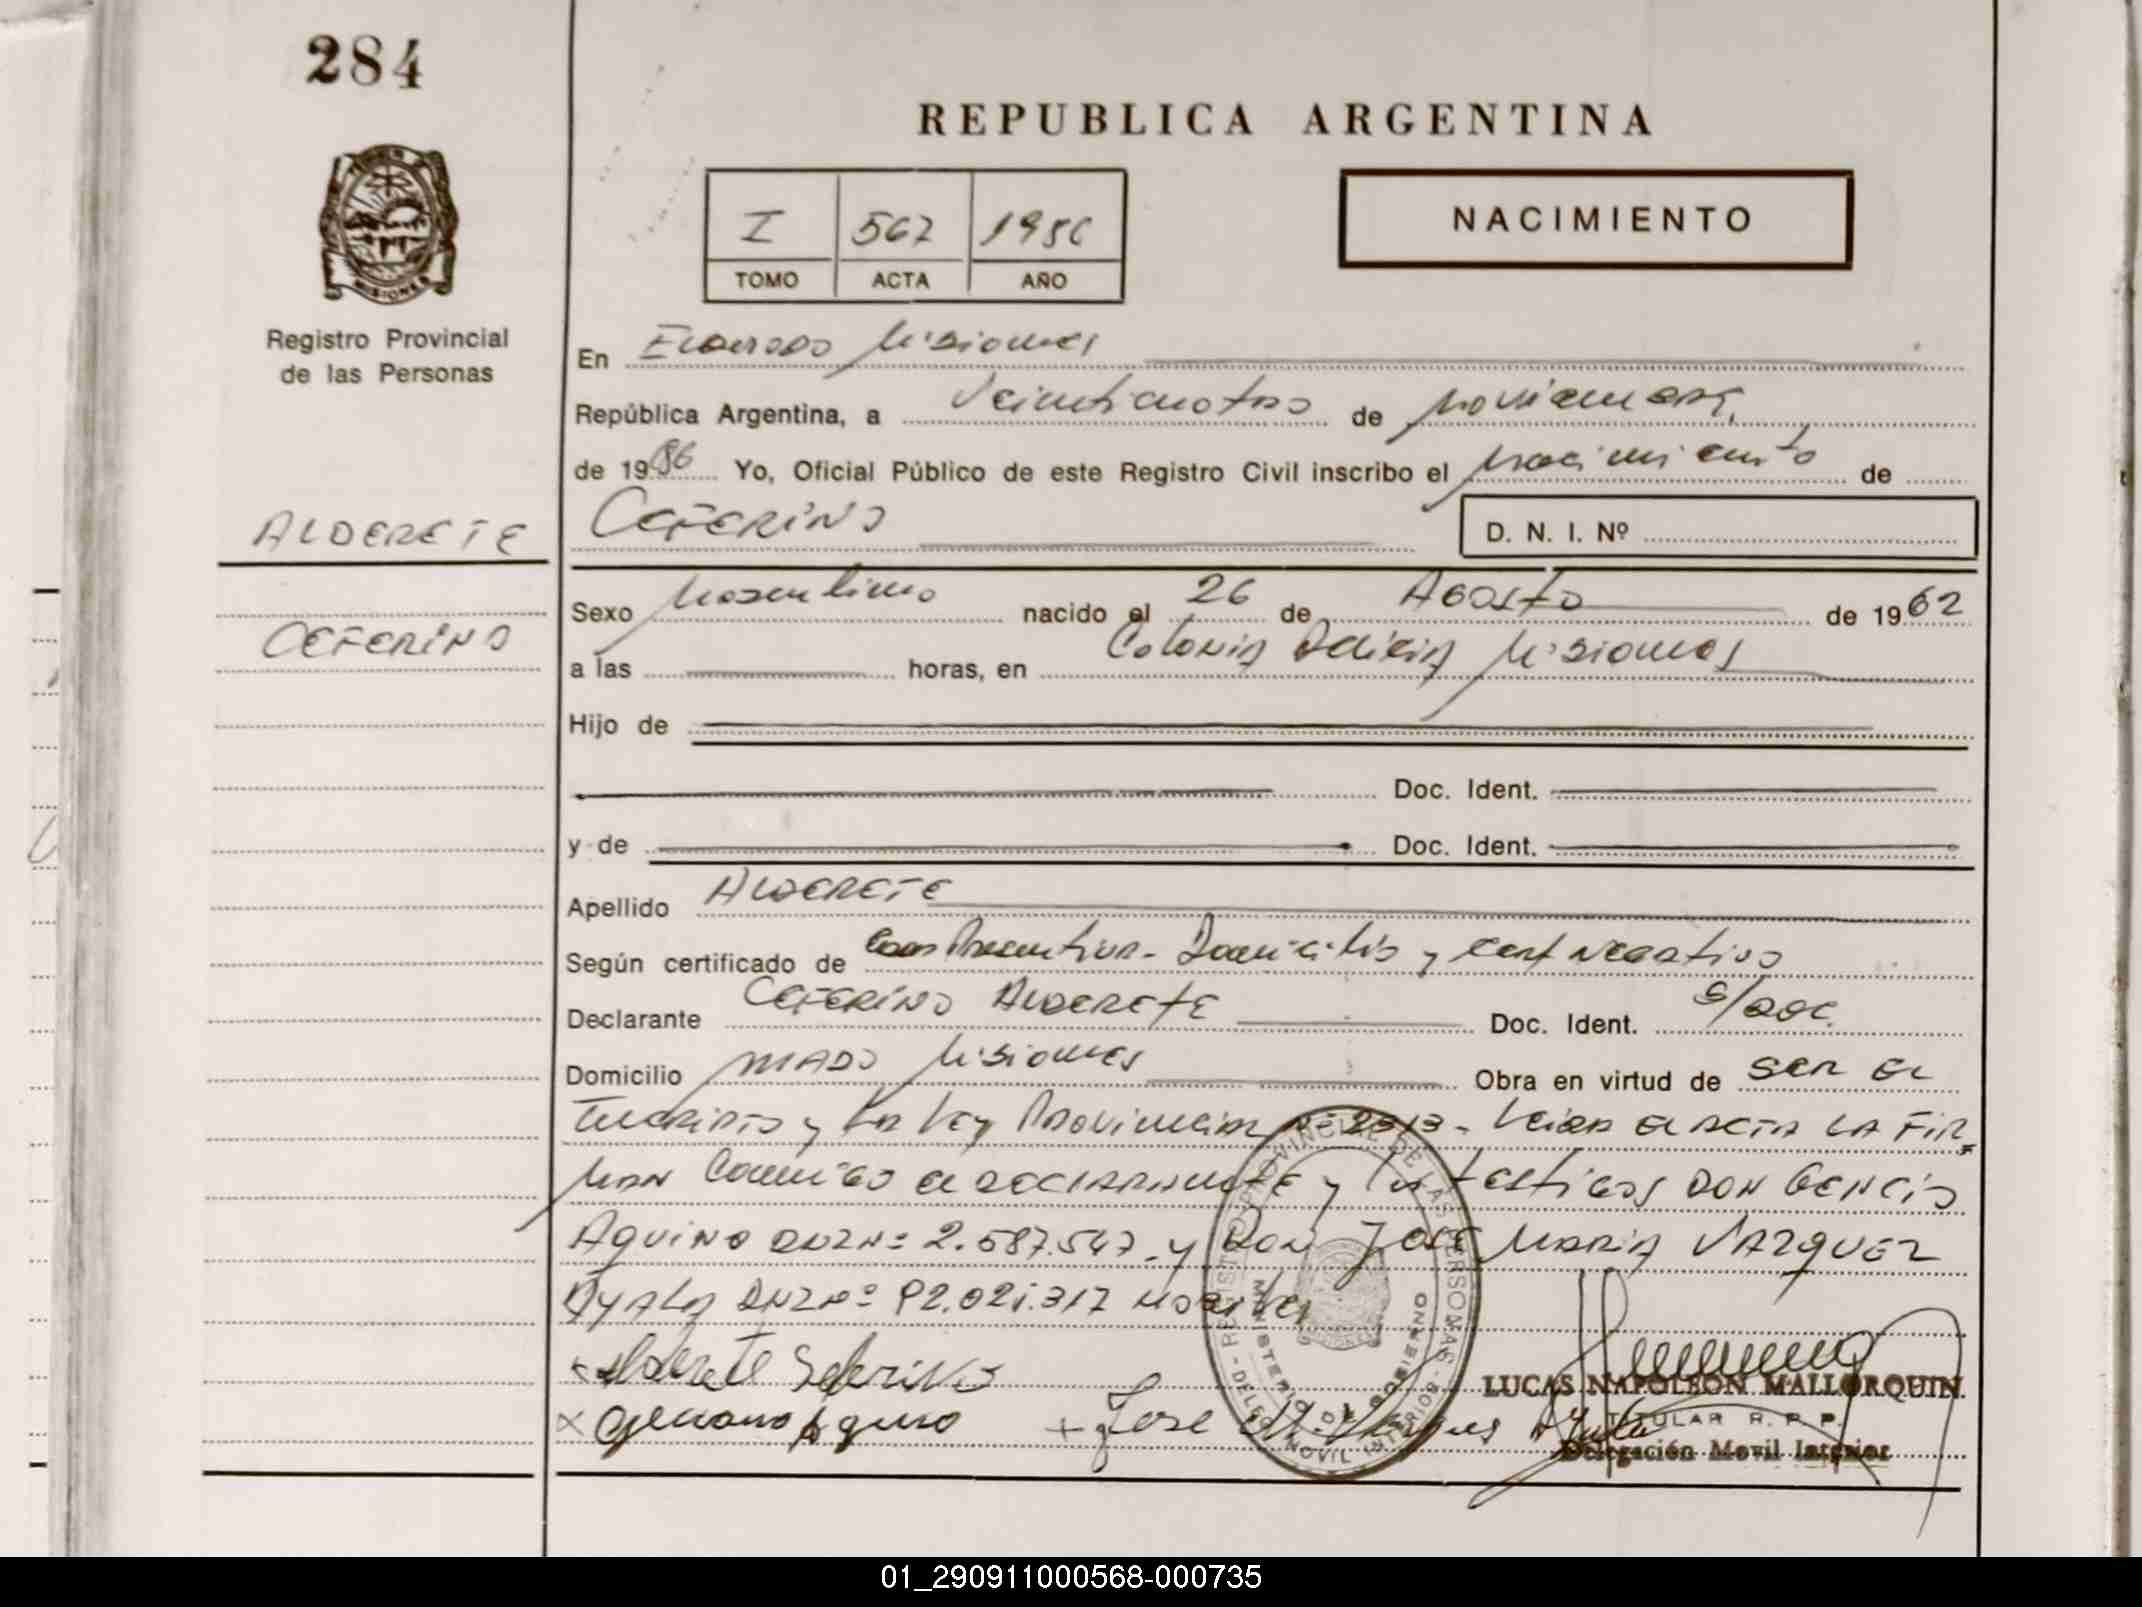 284
REPUBLICA ARGENTINA
I 567 1986
TOMO ACTA AÑO
NACIMIENTO
MISIONES
Registro Provincial
de las Personas
En Eldorado Misiones
República Argentina, a Veinticuatro de noviembre
de 1986 Yo, Oficial Público de este Registro Civil inscribo el nacimiento de
ALDERETE
CEFERINO
D. N. I. Nº
CEFERINO
Sexo Masculino nacido el 26 de AGOSTO de 1962
a las horas, en Colonia Delicia Misiones
Hijo de
Doc. Ident.
y de Doc. Ident.
Apellido ALDERETE
Según certificado de Presuntiva - Domicilio y cert negativo
Declarante CEFERINO ALDERETE Doc. Ident. S/DOC.
Domicilio MADO Misiones Obra en virtud de SER EL
Inscripto y la Ley Provincial Nº - Leida EL ACTA LA FIR
MAN Conmigo el DECLARANTE y los testigos DON GENCIO
Aquino DNI Nº 2.587.547 - y DON JOSE MARIA VAZQUEZ
Ayala DNI Nº 92.021.317
Alderete Seferino
Aquino + Jose M. Ayala
REGISTRO PROVINCIAL DE LAS PERSONAS
MINISTERIO DE GOBIERNO
DELEG. MOVIL INTERIOR
LUCAS NAPOLEON MALLORQUIN
TITULAR R. P. P.
Delegación Movil Interior
01_290911000568-000735